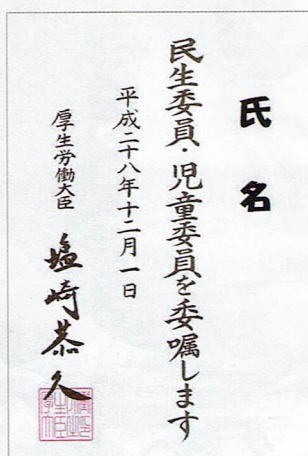 氏名
民生委員・児童委員を委嘱します
平成二十八年十二月一日
厚生労働大臣 塩崎恭久